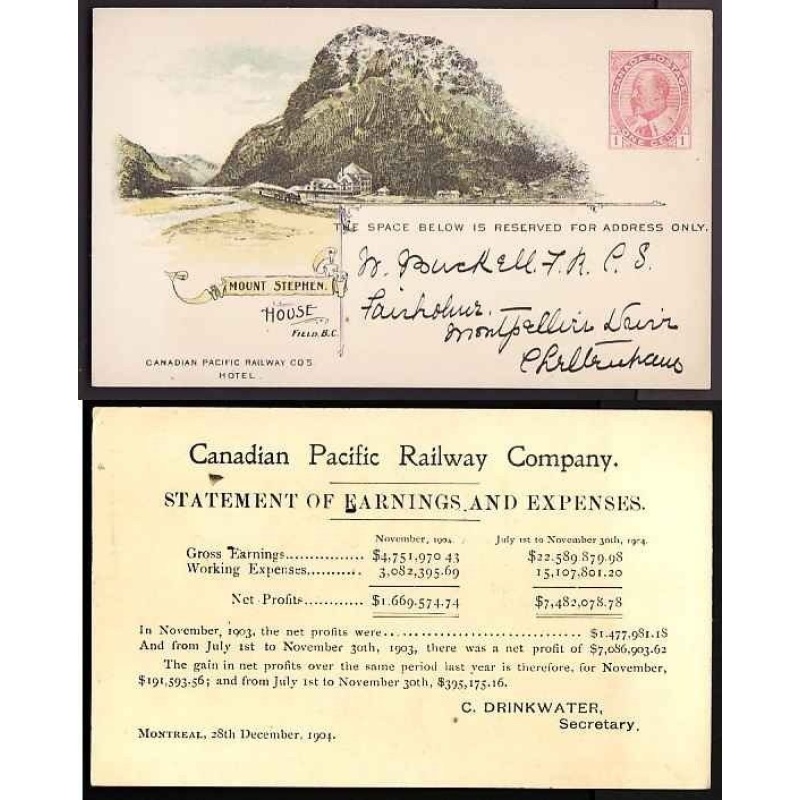 CANADA POSTAGE
1 ONE CENT 1
THE SPACE BELOW IS RESERVED FOR ADDRESS ONLY.
W. Buckell. F. R. P. S.
Fairholme.
Montpellier Drive
Cheltenham
MOUNT STEPHEN.
HOUSE
FIELD. B.C.
CANADIAN PACIFIC RAILWAY CO'S
HOTEL.
Canadian Pacific Railway Company.
STATEMENT OF EARNINGS AND EXPENSES.
November, 1904. July 1st to November 30th, 1904.
Gross Earnings............... $4,751,970 43 $22.589.879.98
Working Expenses.......... 3,082,395.69 15,107,801.20
Net Profits............ $1.669.574.74 $7,482,078.78
In November, 1903, the net profits were.............................. $1.477,981.18
And from July 1st to November 30th, 1903, there was a net profit of $7,086,903.62
The gain in net profits over the same period last year is therefore, for November,
$191,593.56; and from July 1st to November 30th, $395,175.16.
C. DRINKWATER,
Secretary.
MONTREAL, 28th December, 1904.